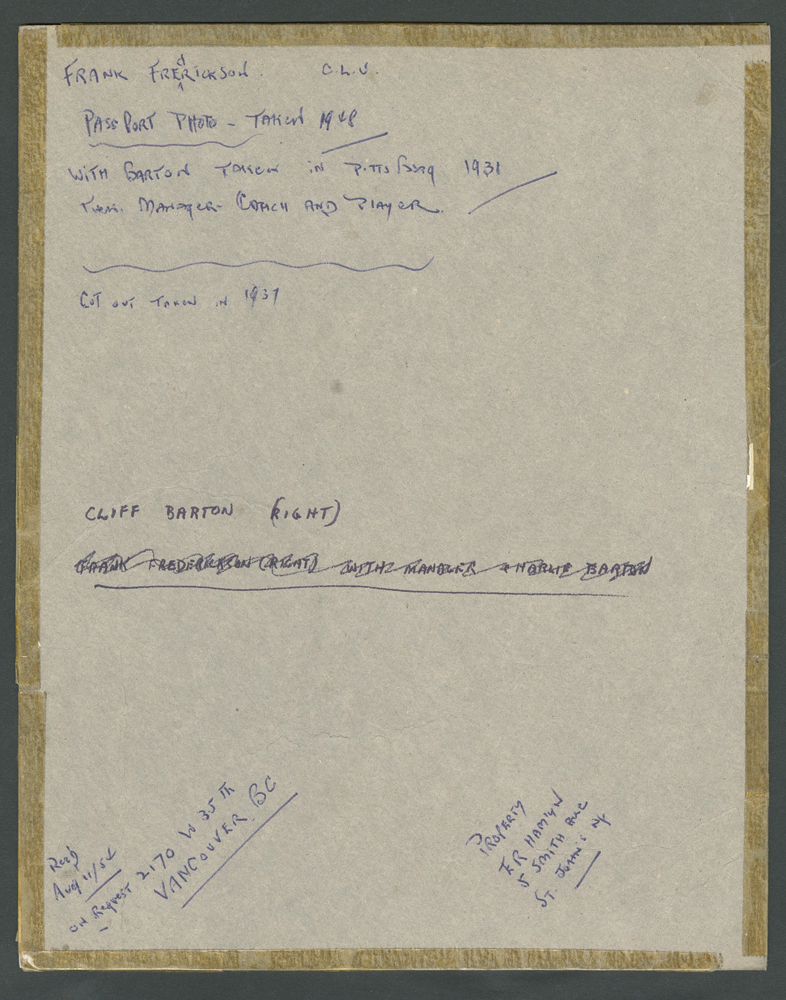 FRANK FREdRICKSON. C.L.U.
PASSPORT PHOTO - TAKEN 1948
WITH BARTON TAKEN IN PITTSBURG 1931
MANAGER - COACH AND PLAYER.
CUT OUT TAKEN IN 1937
CLIFF BARTON (RIGHT)
FRANK FREDERICKSON (RIGHT) WITH MANAGER CHARLIE BARTON
Recd
Aug 11/54
ON Request 2170 W 35 TH
VANCOUVER BC
PROPERTY
ER HAMLYN
5 SMITH AVE
ST. JOHN'S Nf